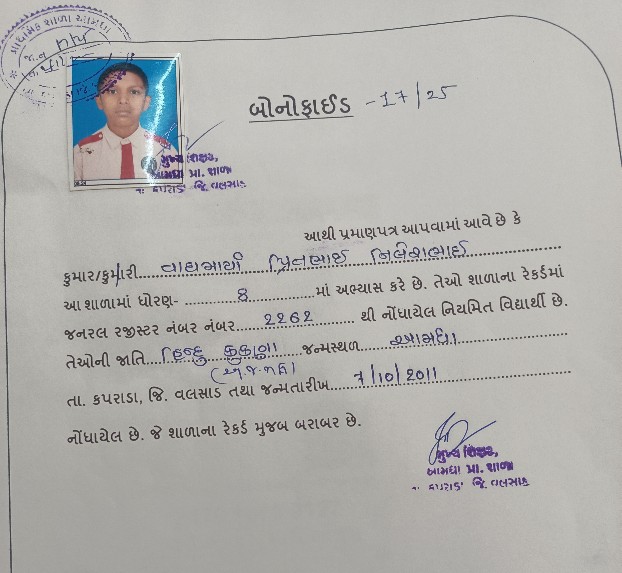 પ્રાથમિક શાળા આમધા
બોનોફાઈડ - 17/25
મુખ્ય શિક્ષક,
આમધા પ્રા. શાળા
તા. કપરાડા જિ. વલસાડ
આથી પ્રમાણપત્ર આપવામાં આવે છે કે
કુમાર/કુમારી વાઘમાર્યા પ્રિતભાઈ નિલેશભાઈ
આ શાળામાં ધોરણ- 8 માં અભ્યાસ કરે છે. તેઓ શાળાના રેકર્ડમાં
જનરલ રજીસ્ટર નંબર નંબર 2262 થી નોંધાયેલ નિયમિત વિદ્યાર્થી છે.
તેઓની જાતિ હિન્દુ કુકણા જન્મસ્થળ આમધા
(અ.જ.જા)
તા. કપરાડા, જિ. વલસાડ તથા જન્મતારીખ 7/10/2011
નોંધાયેલ છે. જે શાળાના રેકર્ડ મુજબ બરાબર છે.
મુખ્ય શિક્ષક,
આમધા પ્રા. શાળા
તા. કપરાડા જિ. વલસાડ